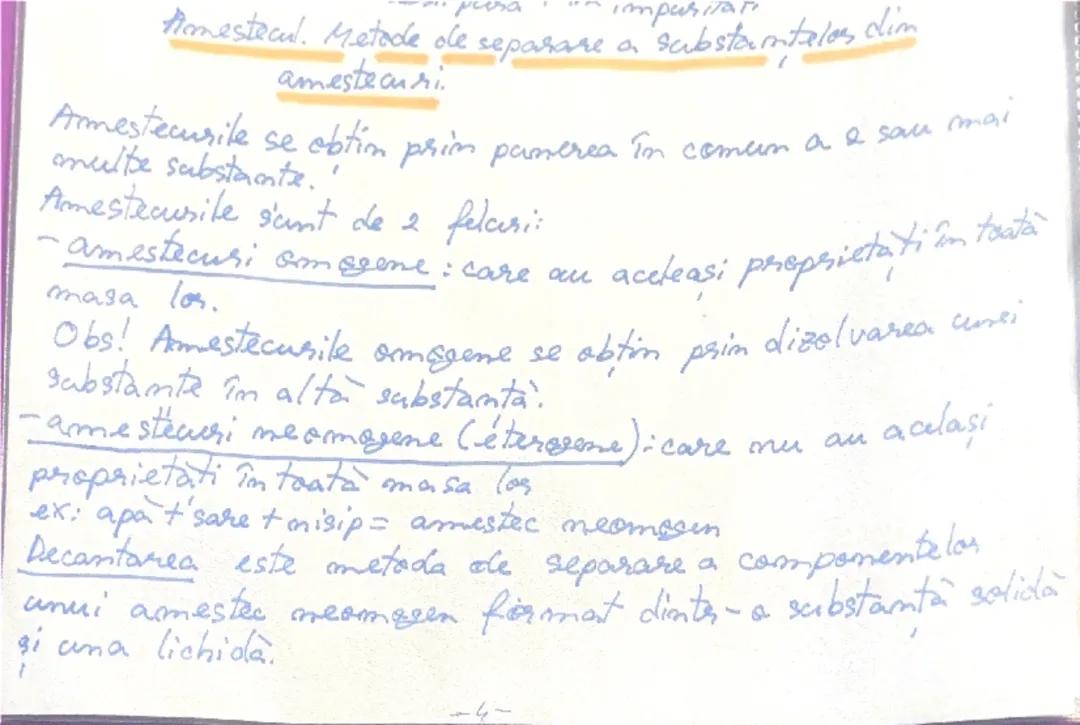 pură impurități
Amestecul. Metode de separare a substanțelor din
amestecuri.
Amestecurile se obțin prin punerea în comun a 2 sau mai
multe substanțe.
Amestecurile sunt de 2 feluri:
- amestecuri omogene : care au aceleași proprietăți în toată
masa lor.
Obs! Amestecurile omogene se obțin prin dizolvarea unei
substanțe în altă substanță.
- amestecuri neomogene (eterogene) : care nu au același
proprietăți în toată masa lor
ex: apă + sare + nisip = amestec neomogen
Decantarea este metoda de separare a componentelor
unui amestec neomogen format dintr-o substanță solidă
și una lichidă.
-4-